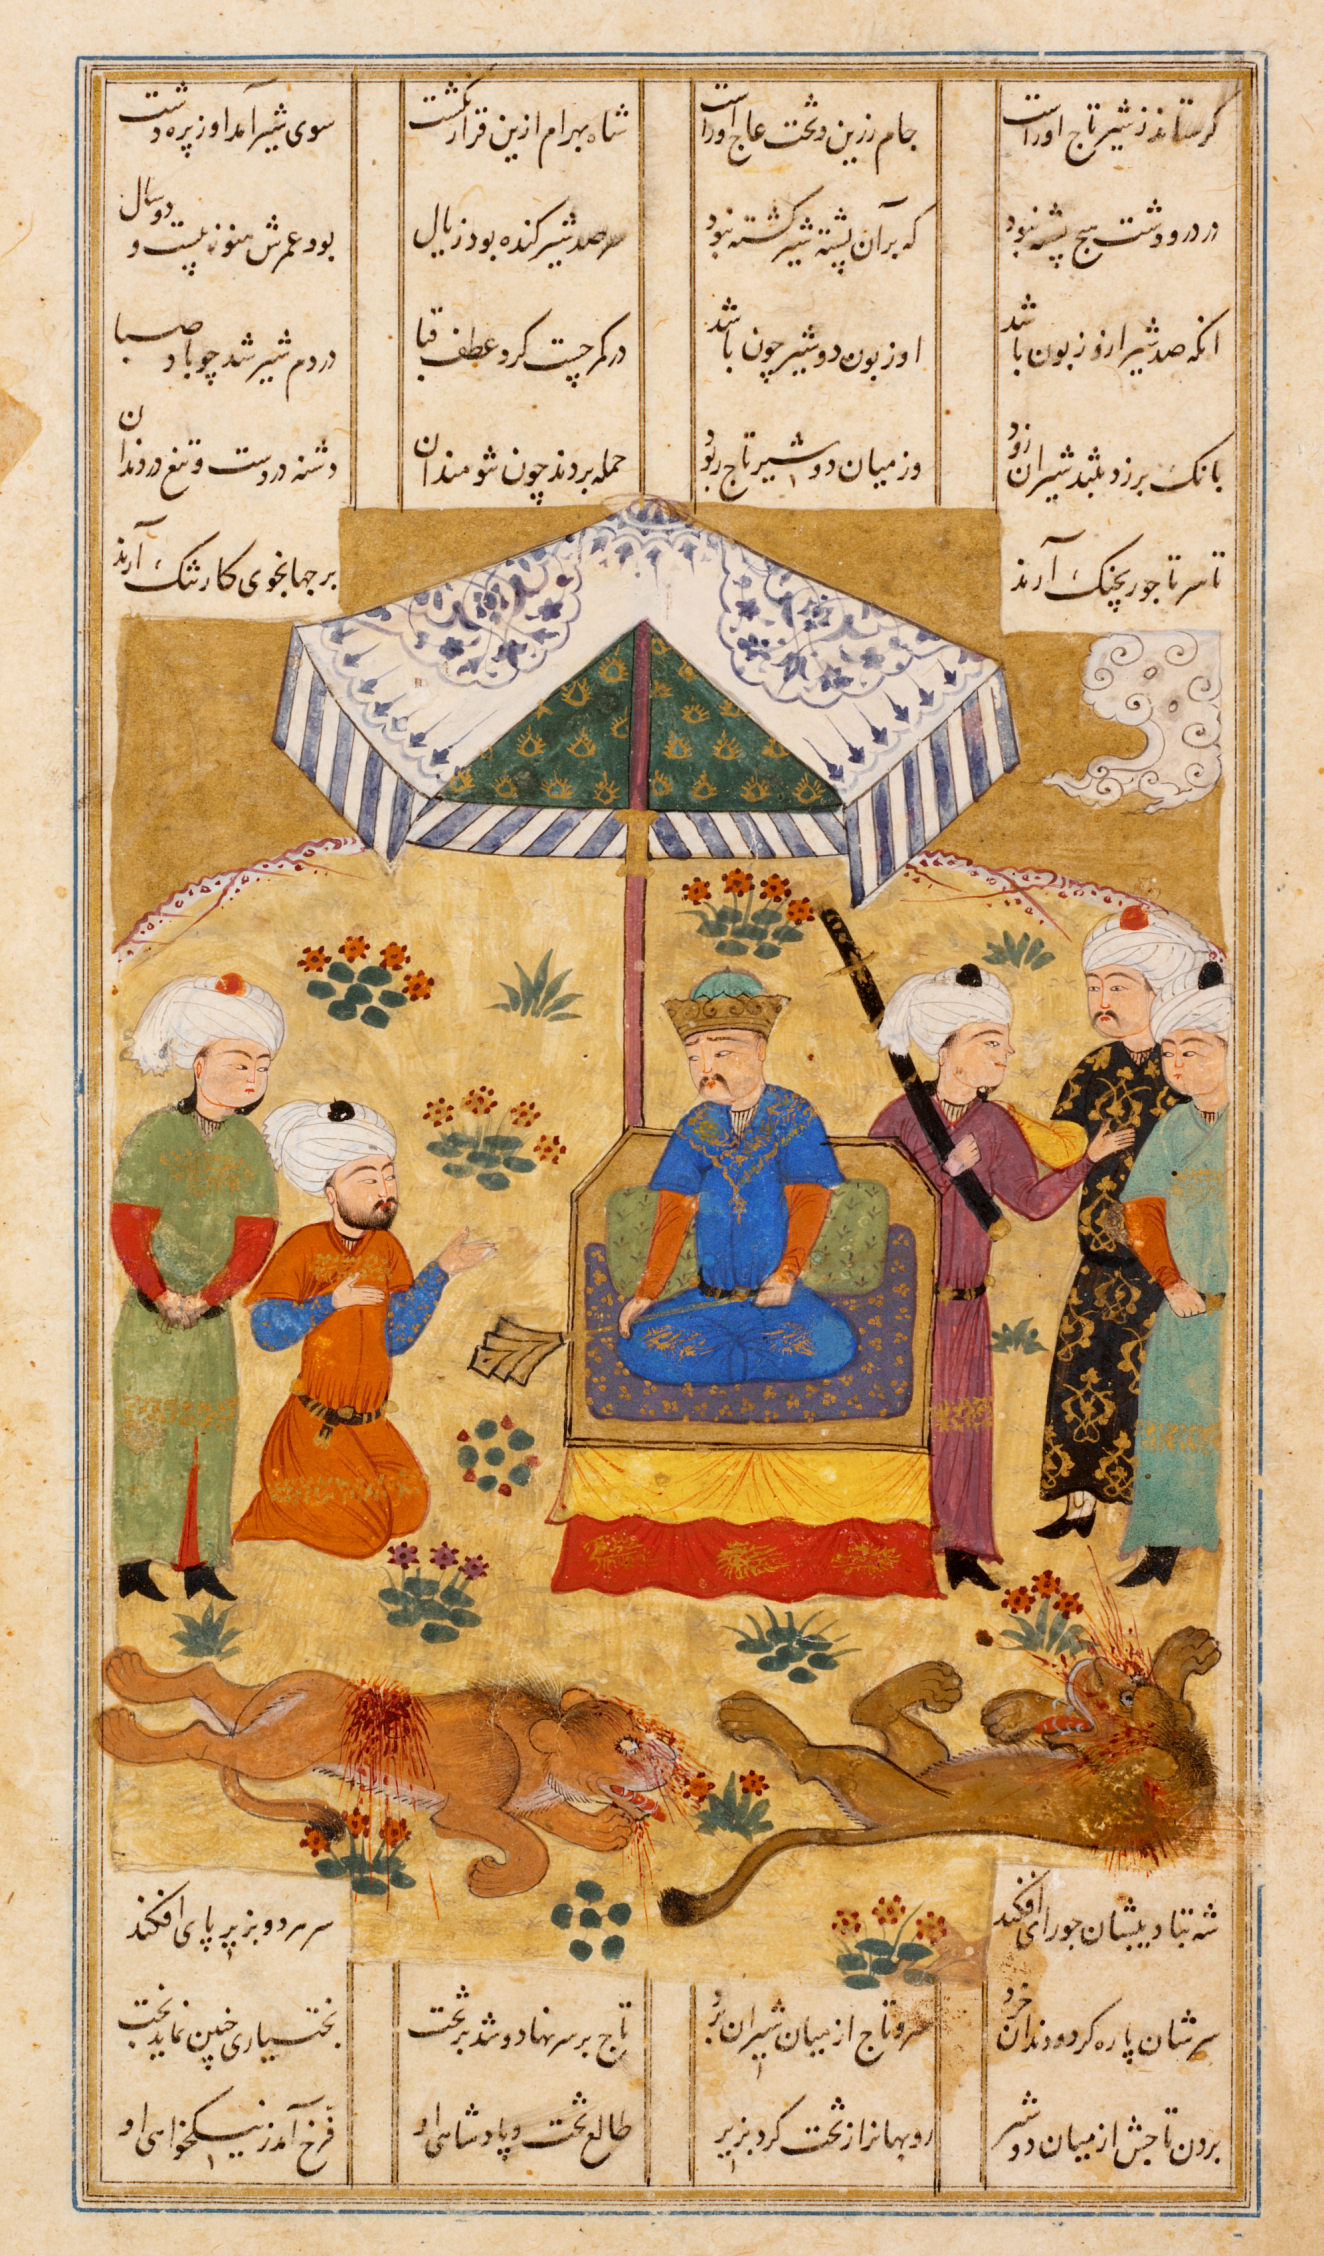 کر ستاند ز شیر تاج اوراست جام زرین و تخت عاج اوراست شاه بهرام ازین قرار نکشت سوی شیر آمد او ز پره دشت
در در و دشت هیچ پشته نبود که بر آن پشته شیر کشته نبود سر صد شیر کنده بود ز یال بود عمرش هنوز بیست و دو سال
انکه صد شیر ازو زبون باشد او زبون دو شیر چون باشد در کمر چست کرد عطف قبا در دم شیر شد چو باد صبا
بانک برزد بتند شیران زود وز میان دو شیر تاج ربود حمله بردند چون تنومندان دشنه در دست و تیغ در دندان
تا سر تاجور بچنک آرند بر جهانجوی کار تنک آرند
شه بتادیبشان چو رای افکند سر هر دو بزیر پای افکند
سرشان پاره کرد و دندان خرد سر و تاج از میان شیران برد تاج بر سر نهاد و شد بر تخت بختیاری چنین نماید بخت
بردن تاجش از میان دو شیر روبهانرا ز تخت کرد بزیر طالع تخت و پادشاهی او فرخ آمد ز نیکخواهی او